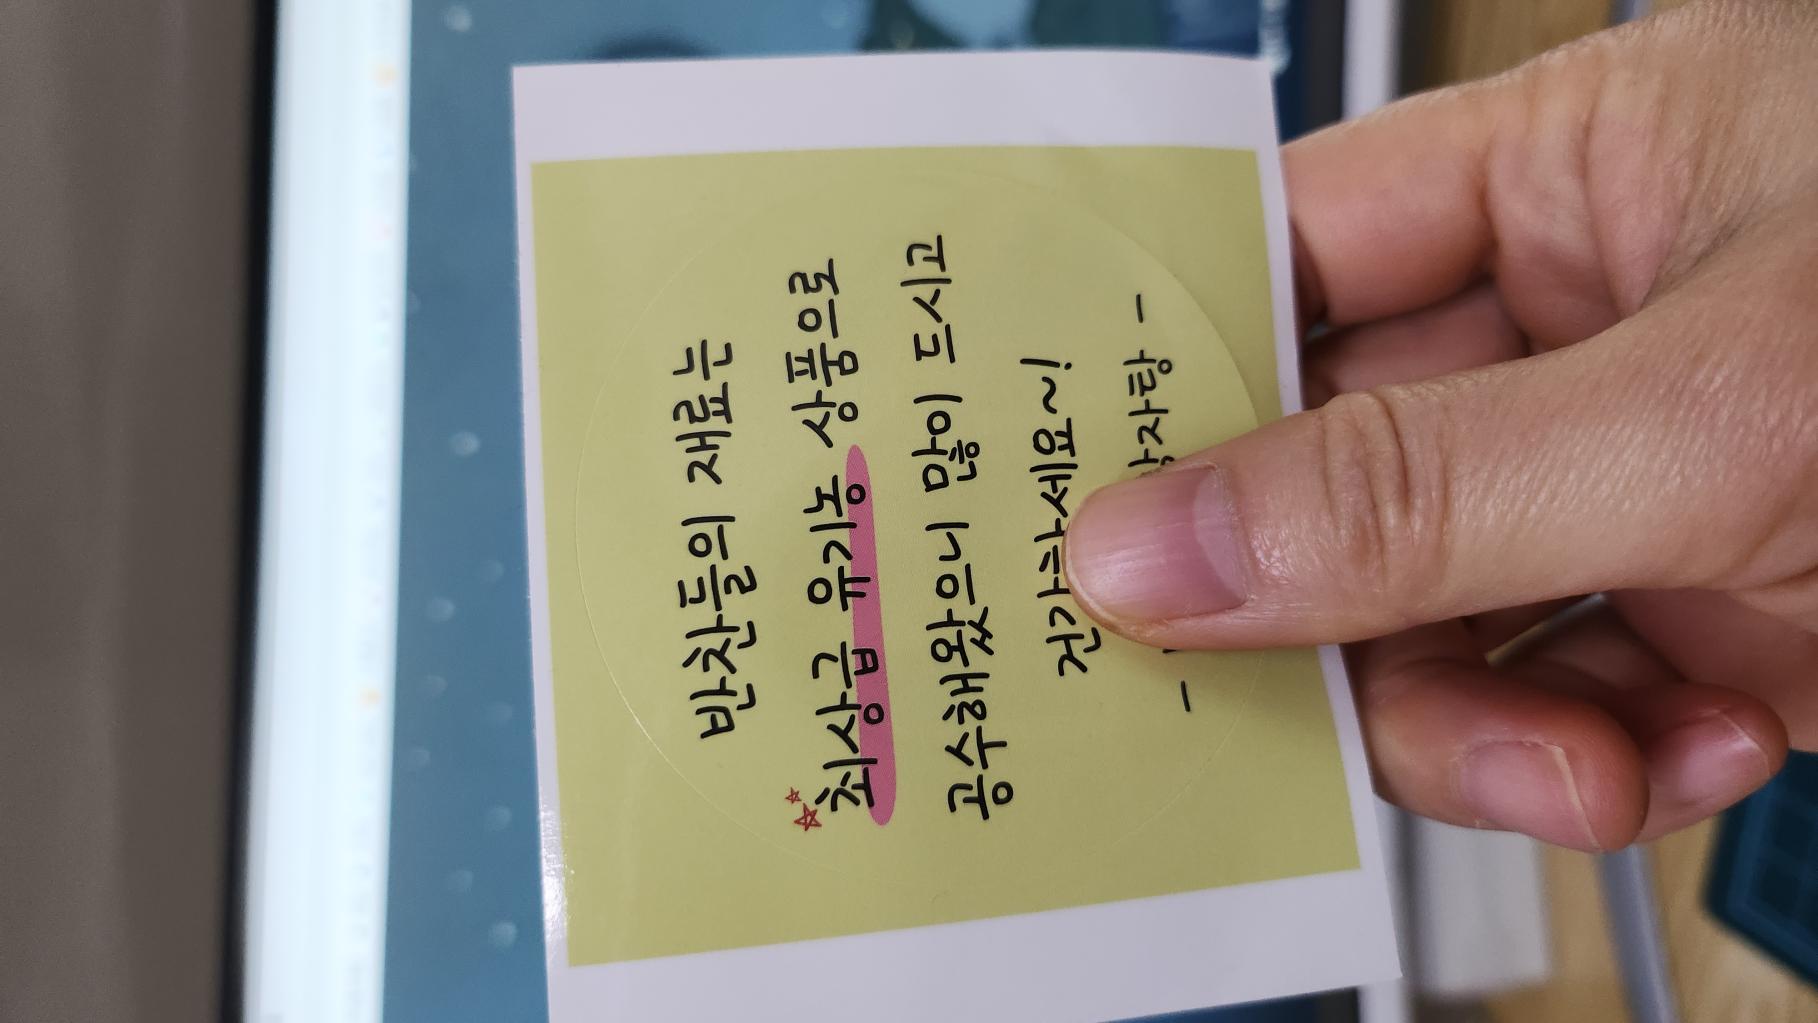 반찬들의 재료는
최상급 유기농 상품으로
공수해왔으니 많이 드시고
건강하세요~!